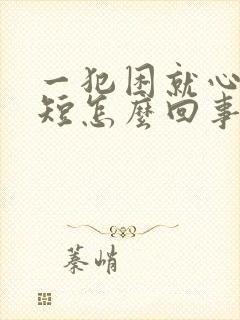 一犯困就心
短怎麼回事
蓁峭